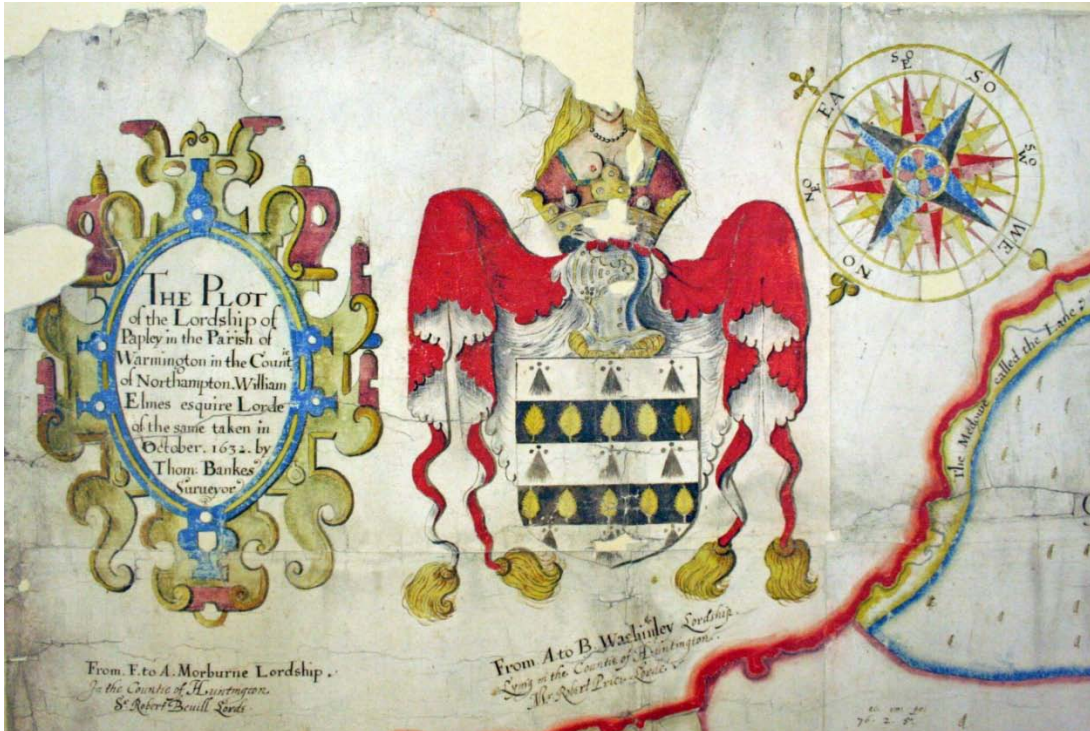 The Plot
of the Lordship of
Papley in the Parish of
Warmington in the Countie
of Northampton. William
Elmes esquire Lorde
of the same taken in
October. 1632. by
Thom: Bankes
Surveyor
SO
E
SO
SO
W
WE
NO
NO
E
EA
The Medowe called the Lane
From F. to A. Morburne Lordship.
In the Countie of Huntington
Sr. Robert Bevill Lorde.
From A to B Washinley Lordship.
Lying in the Countie of Huntington.
Mr Robert Price Lorde.
76. 2. 5.